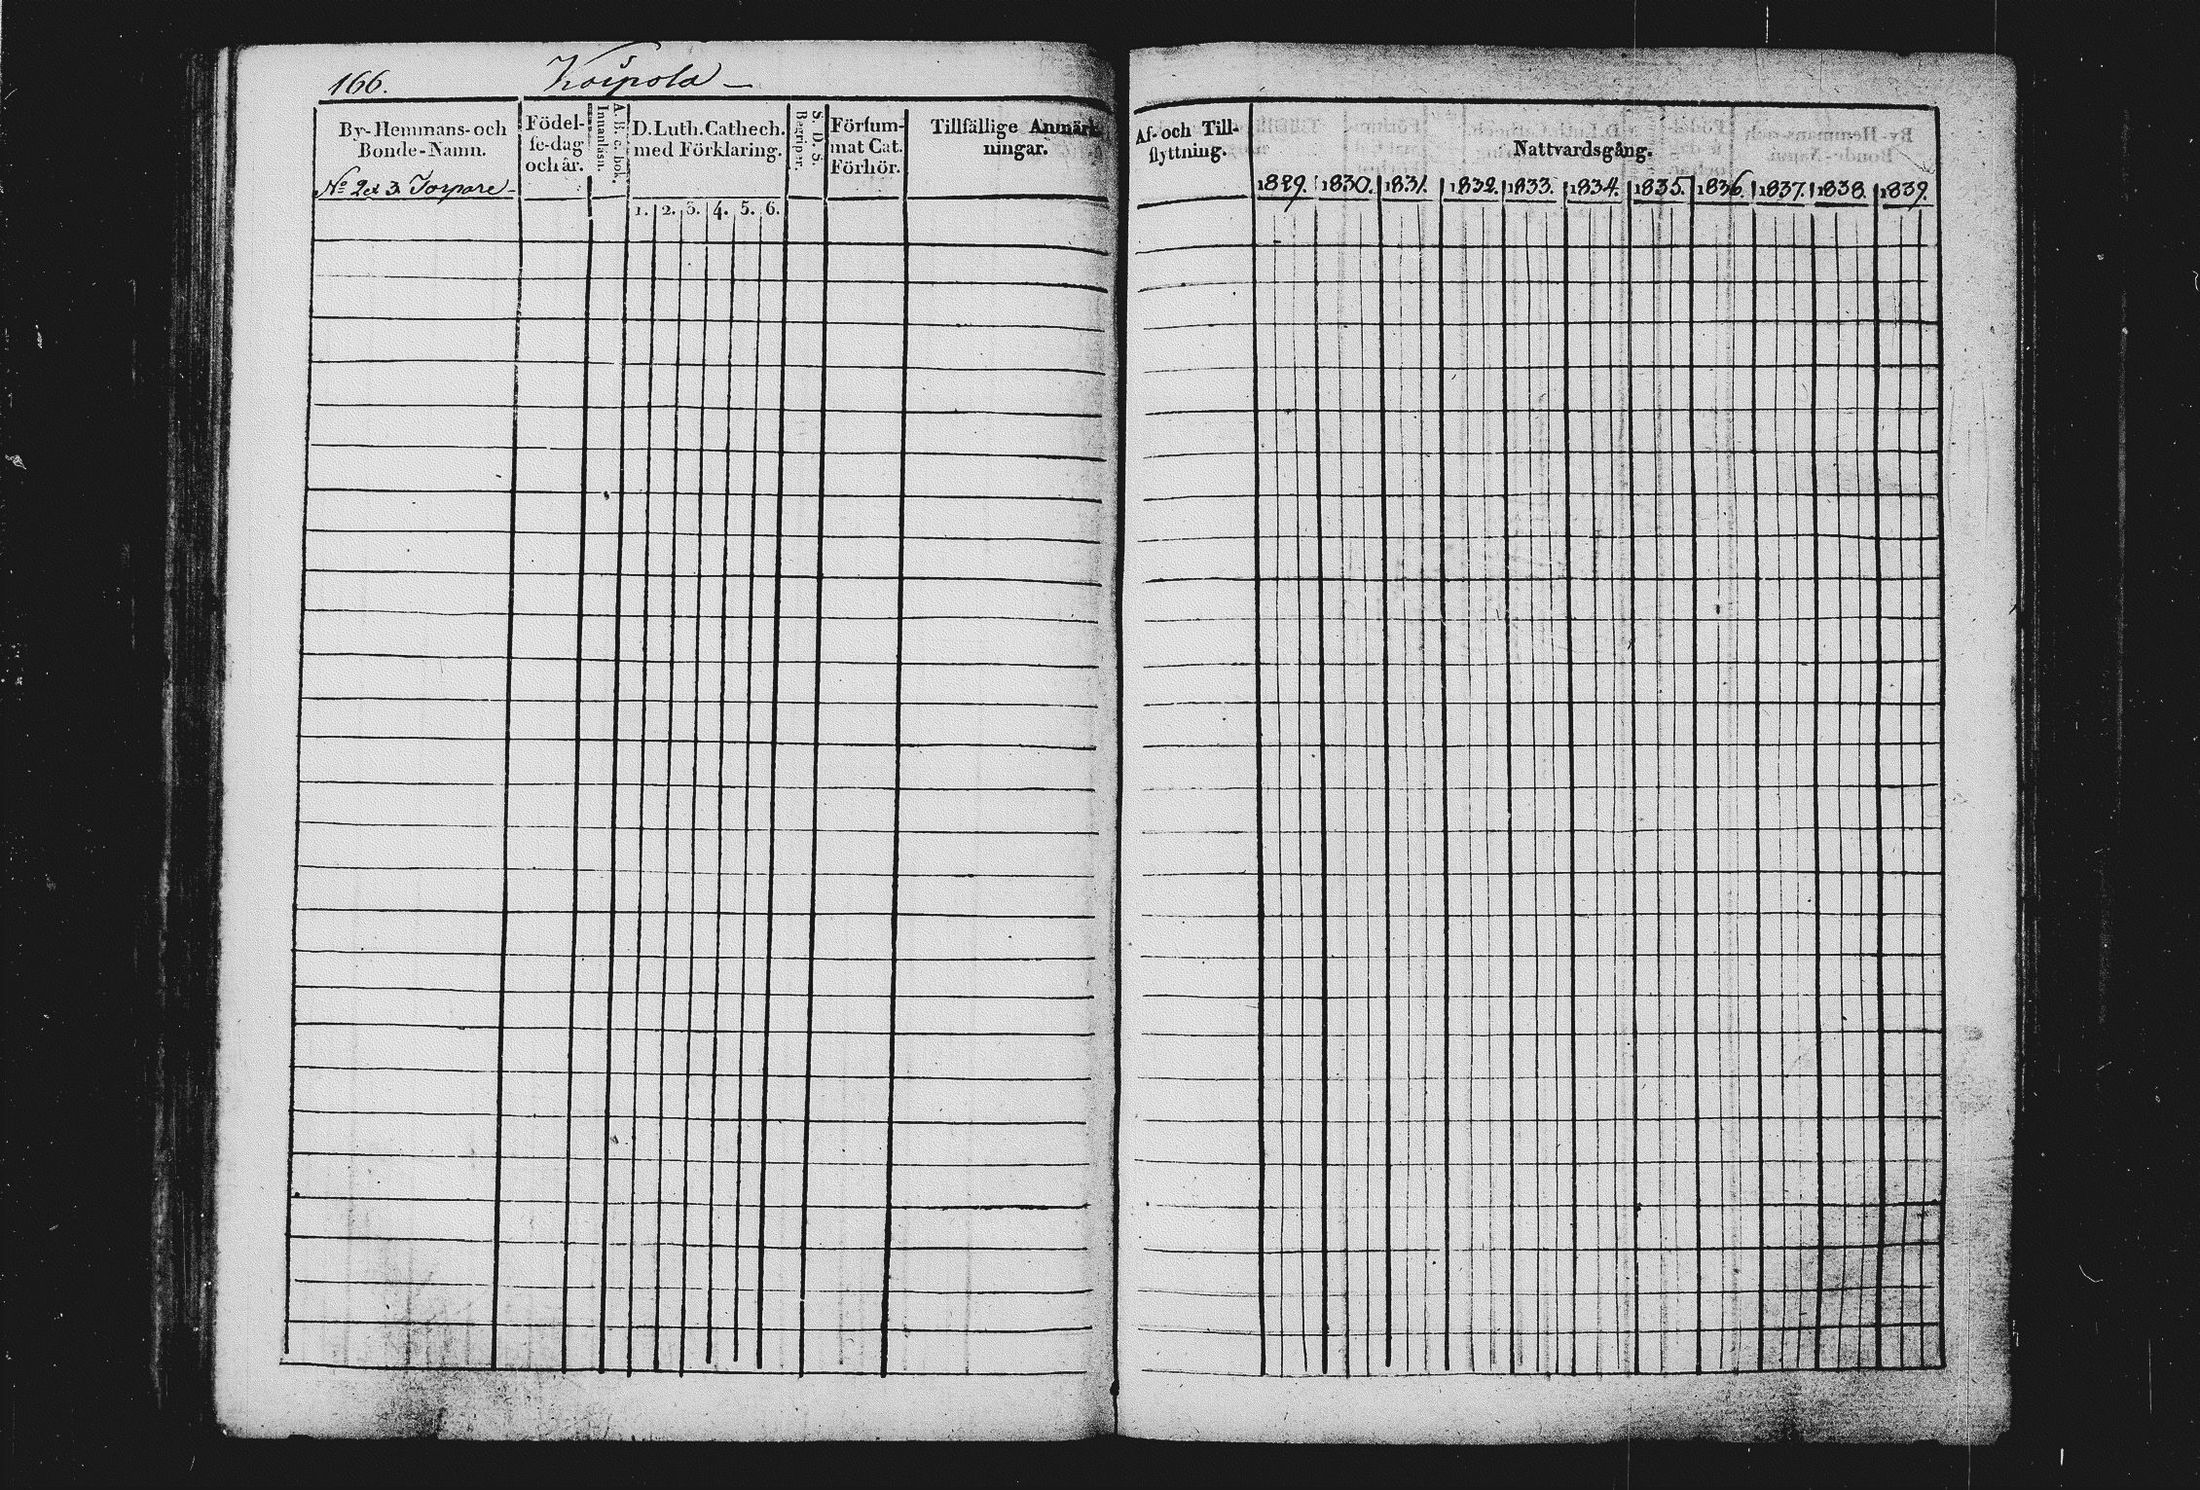 166. Koipola
By-Hemmans-och
Bonde-Namn.
No 2 et 3 Torpare
Födel-
se-dag
och år.
A. B. c. bok.
Innanläsn.
D. Luth. Cathech.
med Förklaring.
1. 2. 3. 4. 5. 6.
S. D. S.
Begripr.
Försum-
mat Cat.
Förhör.
Tillfällige Anmärk-
ningar.
Af- och Till-
flyttning.
Nattvardsgång.
1829. 1830. 1831. 1832. 1833. 1834. 1835. 1836. 1837. 1838. 1839.